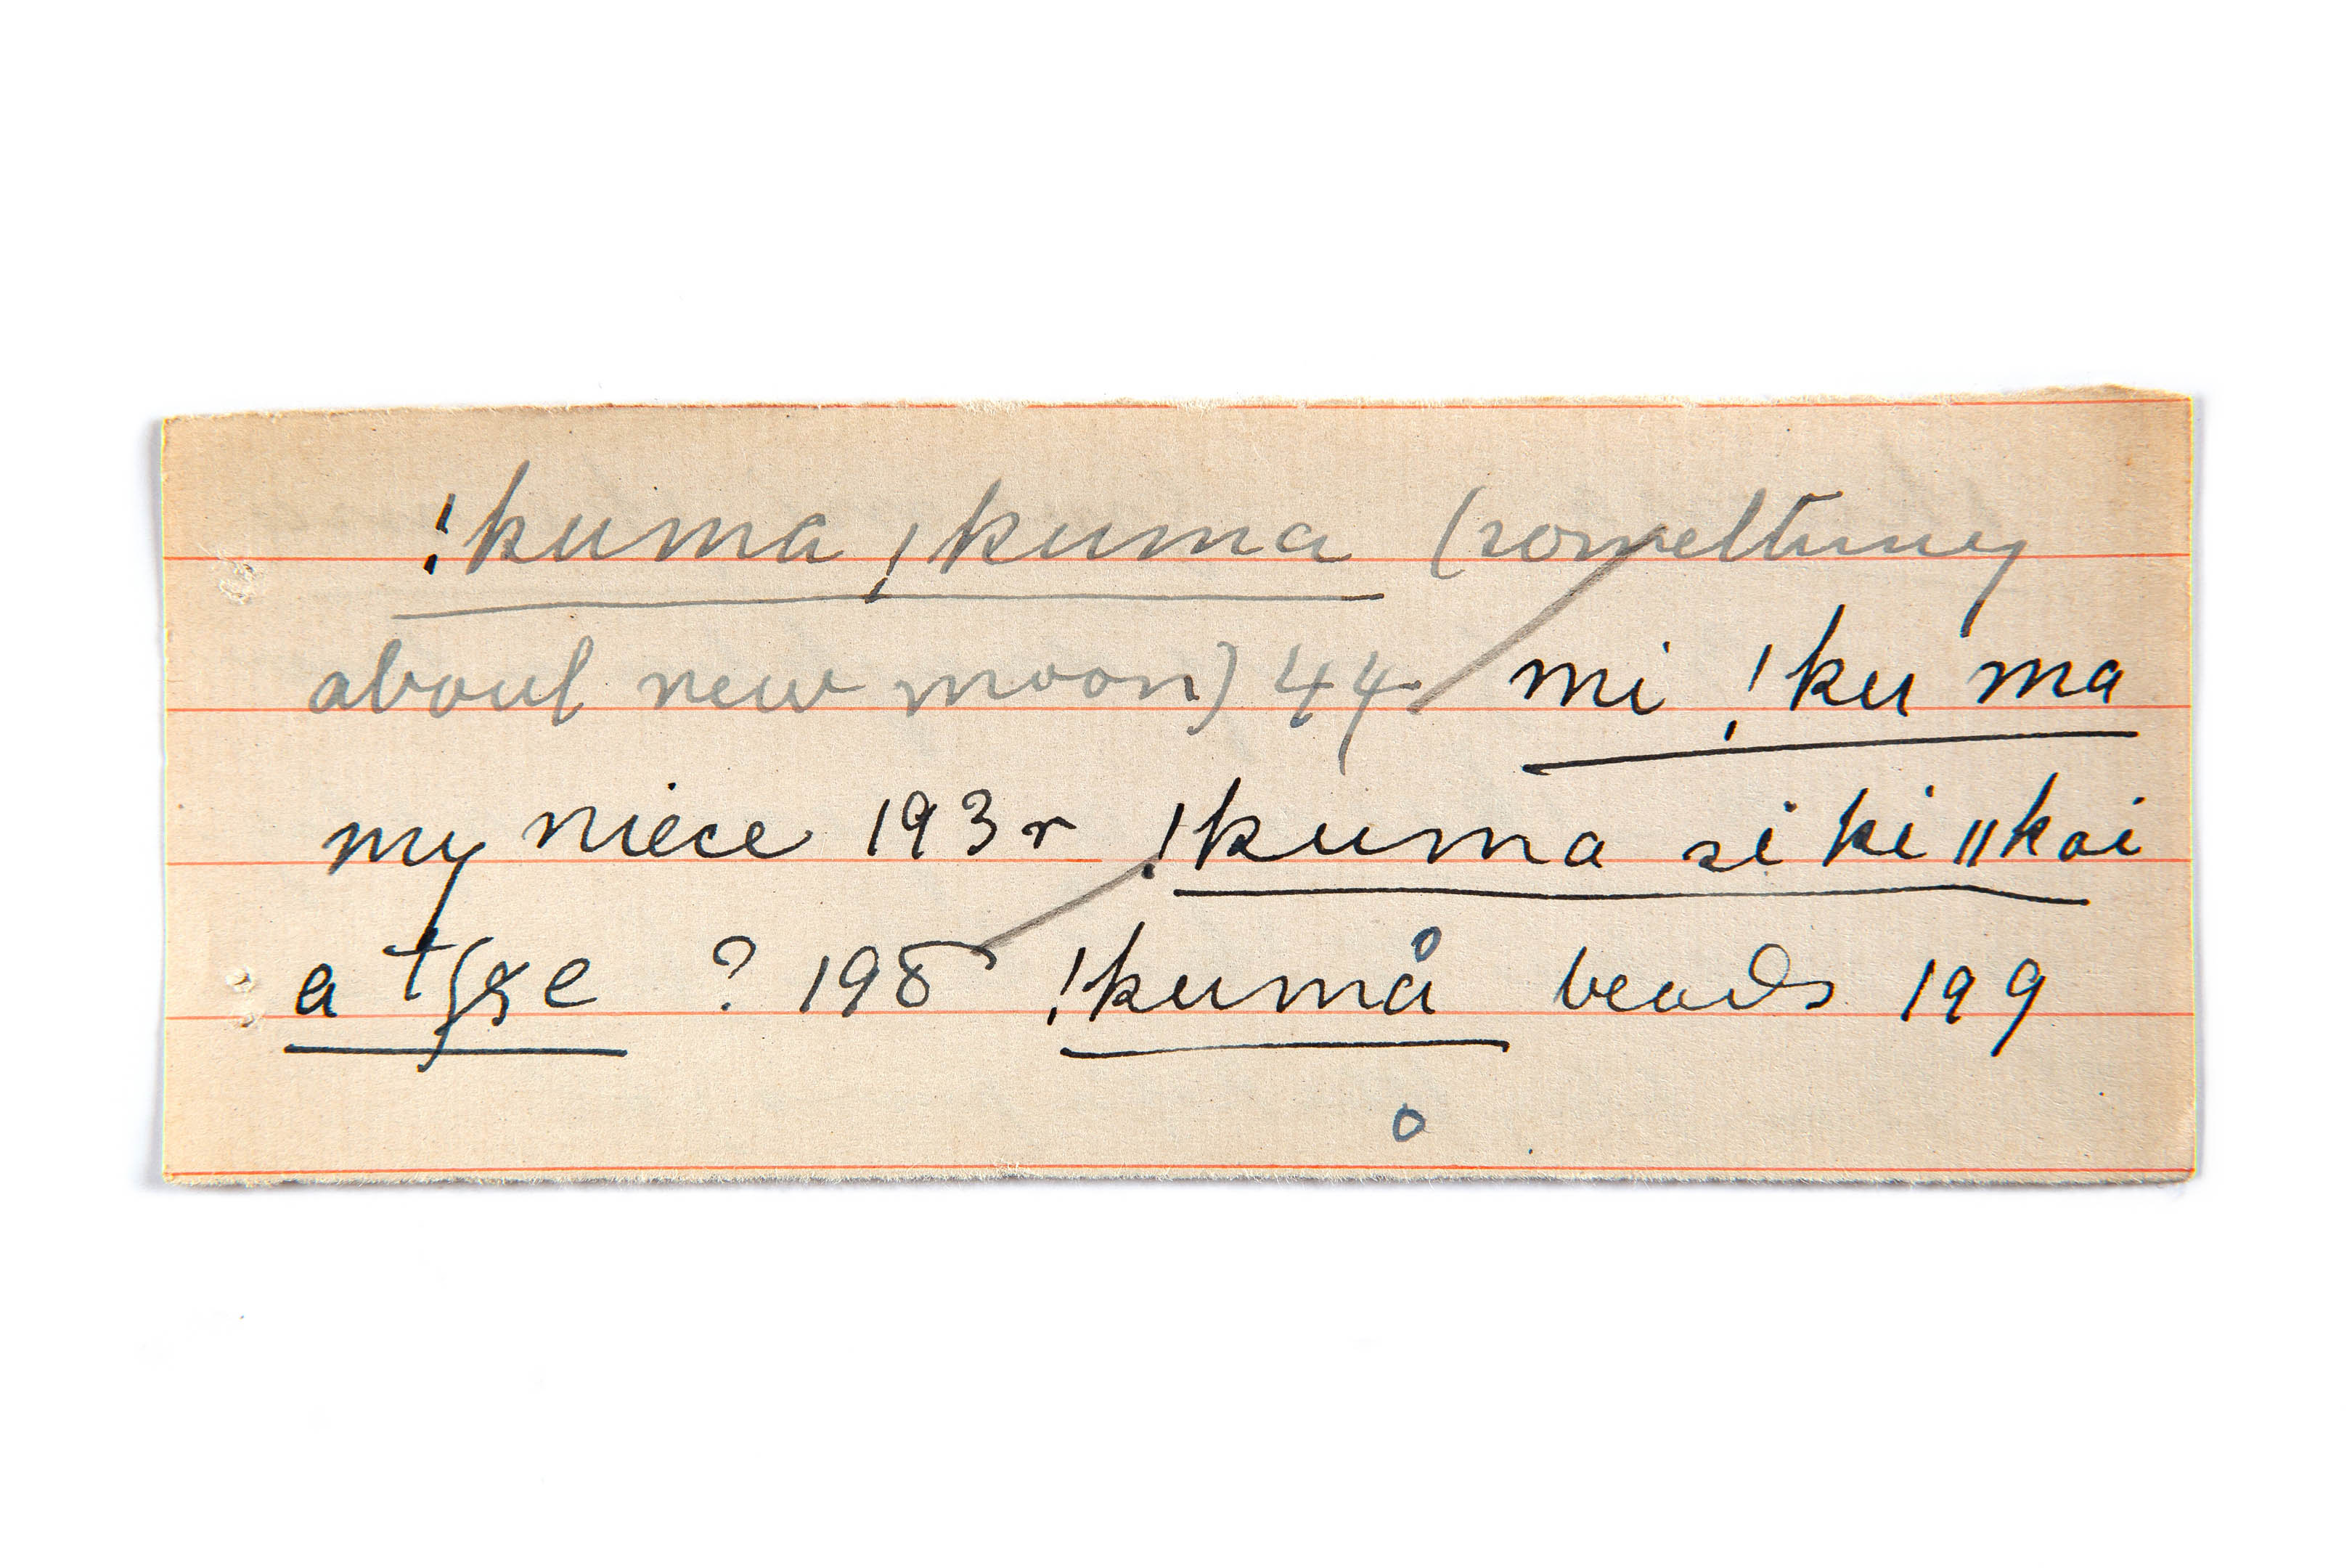 !kuma !kuma (something
about new moon) 44 mi !ku ma
my niece 193r !kuma si ki ǁkai
a ? 198 !kumå beads 199